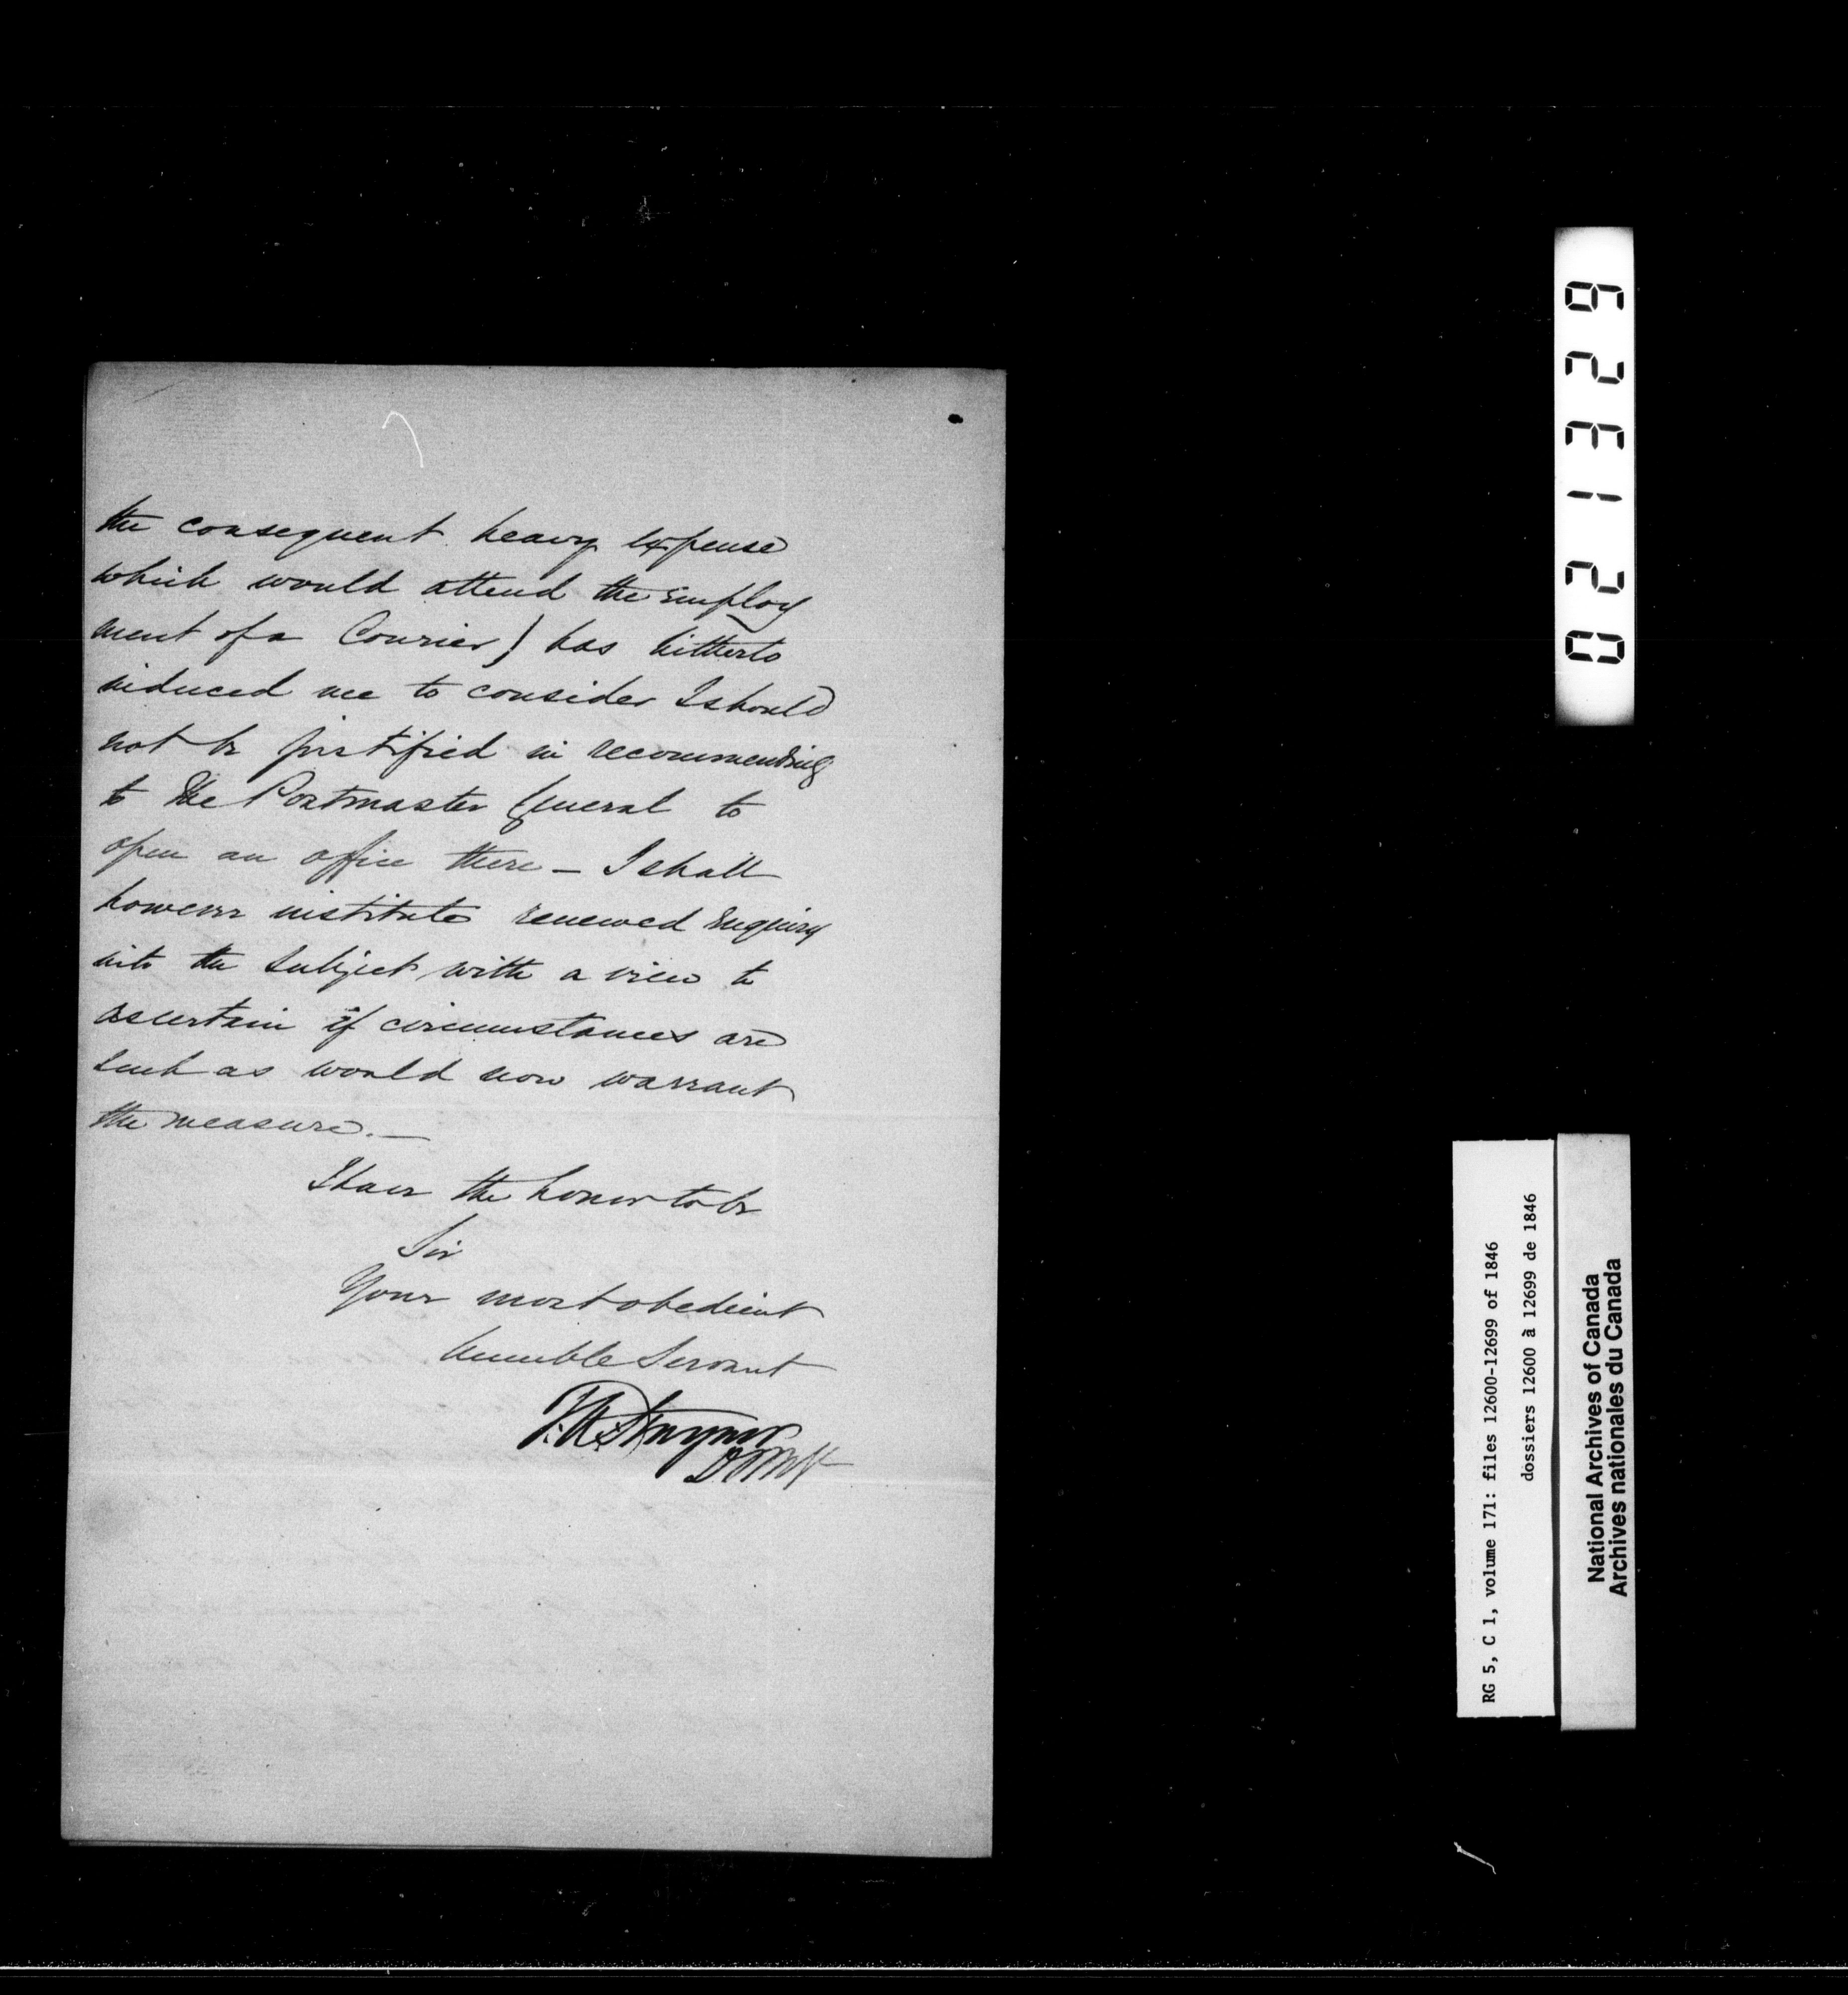 the consequent heavy expense
which would attend the employ
ment of a Courier) has hitherto
induced me to consider I should
not be justified in recommending
to the Postmaster General to
open an office there — I shall
however institute renewed enquiry
into the subject with a view to
ascertain if circumstances are
such as would now warrant
the measure. —
I have the honor to be
Sir
Your most obedient
humble Servant
T. A. Stayner
D.P.M.G.
021329
RG 5, C 1, volume 171: files 12600-12699 of 1846
dossiers 12600 à 12699 de 1846
National Archives of Canada
Archives nationales du Canada